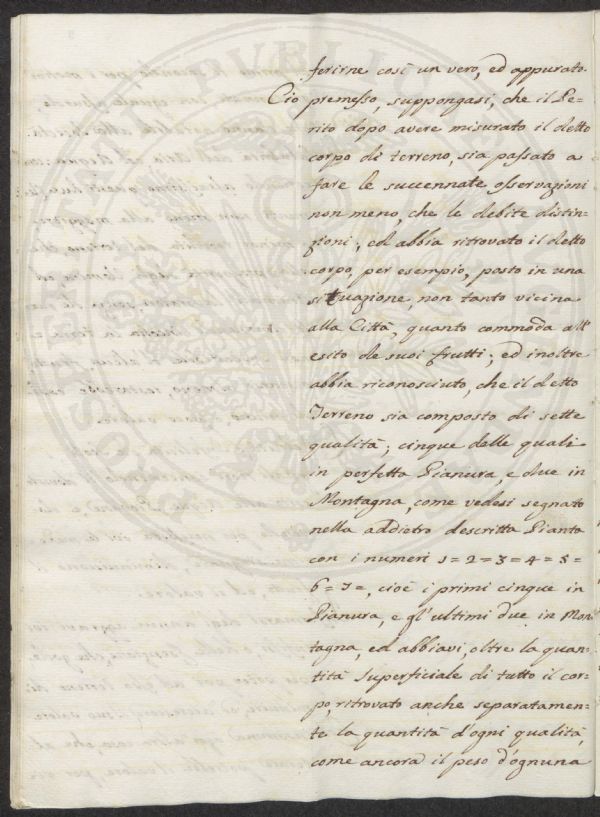 ferirne così un vero, ed appurato.
Cio premesso, suppongasi, che il Pe=
rito dopo avere misurato il detto
corpo di terreno, sia passato a
fare le succennate osservazioni
non meno, che le debite distin=
zioni; ed abbia ritrovato il detto
corpo, per esempio, posto in una
situazione, non tanto vicina
alla Città, quanto commoda all'
esito de suoi frutti; ed inoltre
abbia riconosciuto, che il detto
Terreno sia composto di sette
qualità; cinque delle quali
in perfetta Pianura, e due in
Montagna, come vedesi segnato
nella addietro descritta Pianta
con i numeri 1=2=3=4=5=
6=7=, cioè i primi cinque in
Pianura, e gl'ultimi due in Mon
tagna, ed abbiavi, oltre la quan
tità superficiale di tutto il cor=
po, ritrovato anche separatamen=
te la quantità d'ogni qualità,
come ancora il peso d'ognuna